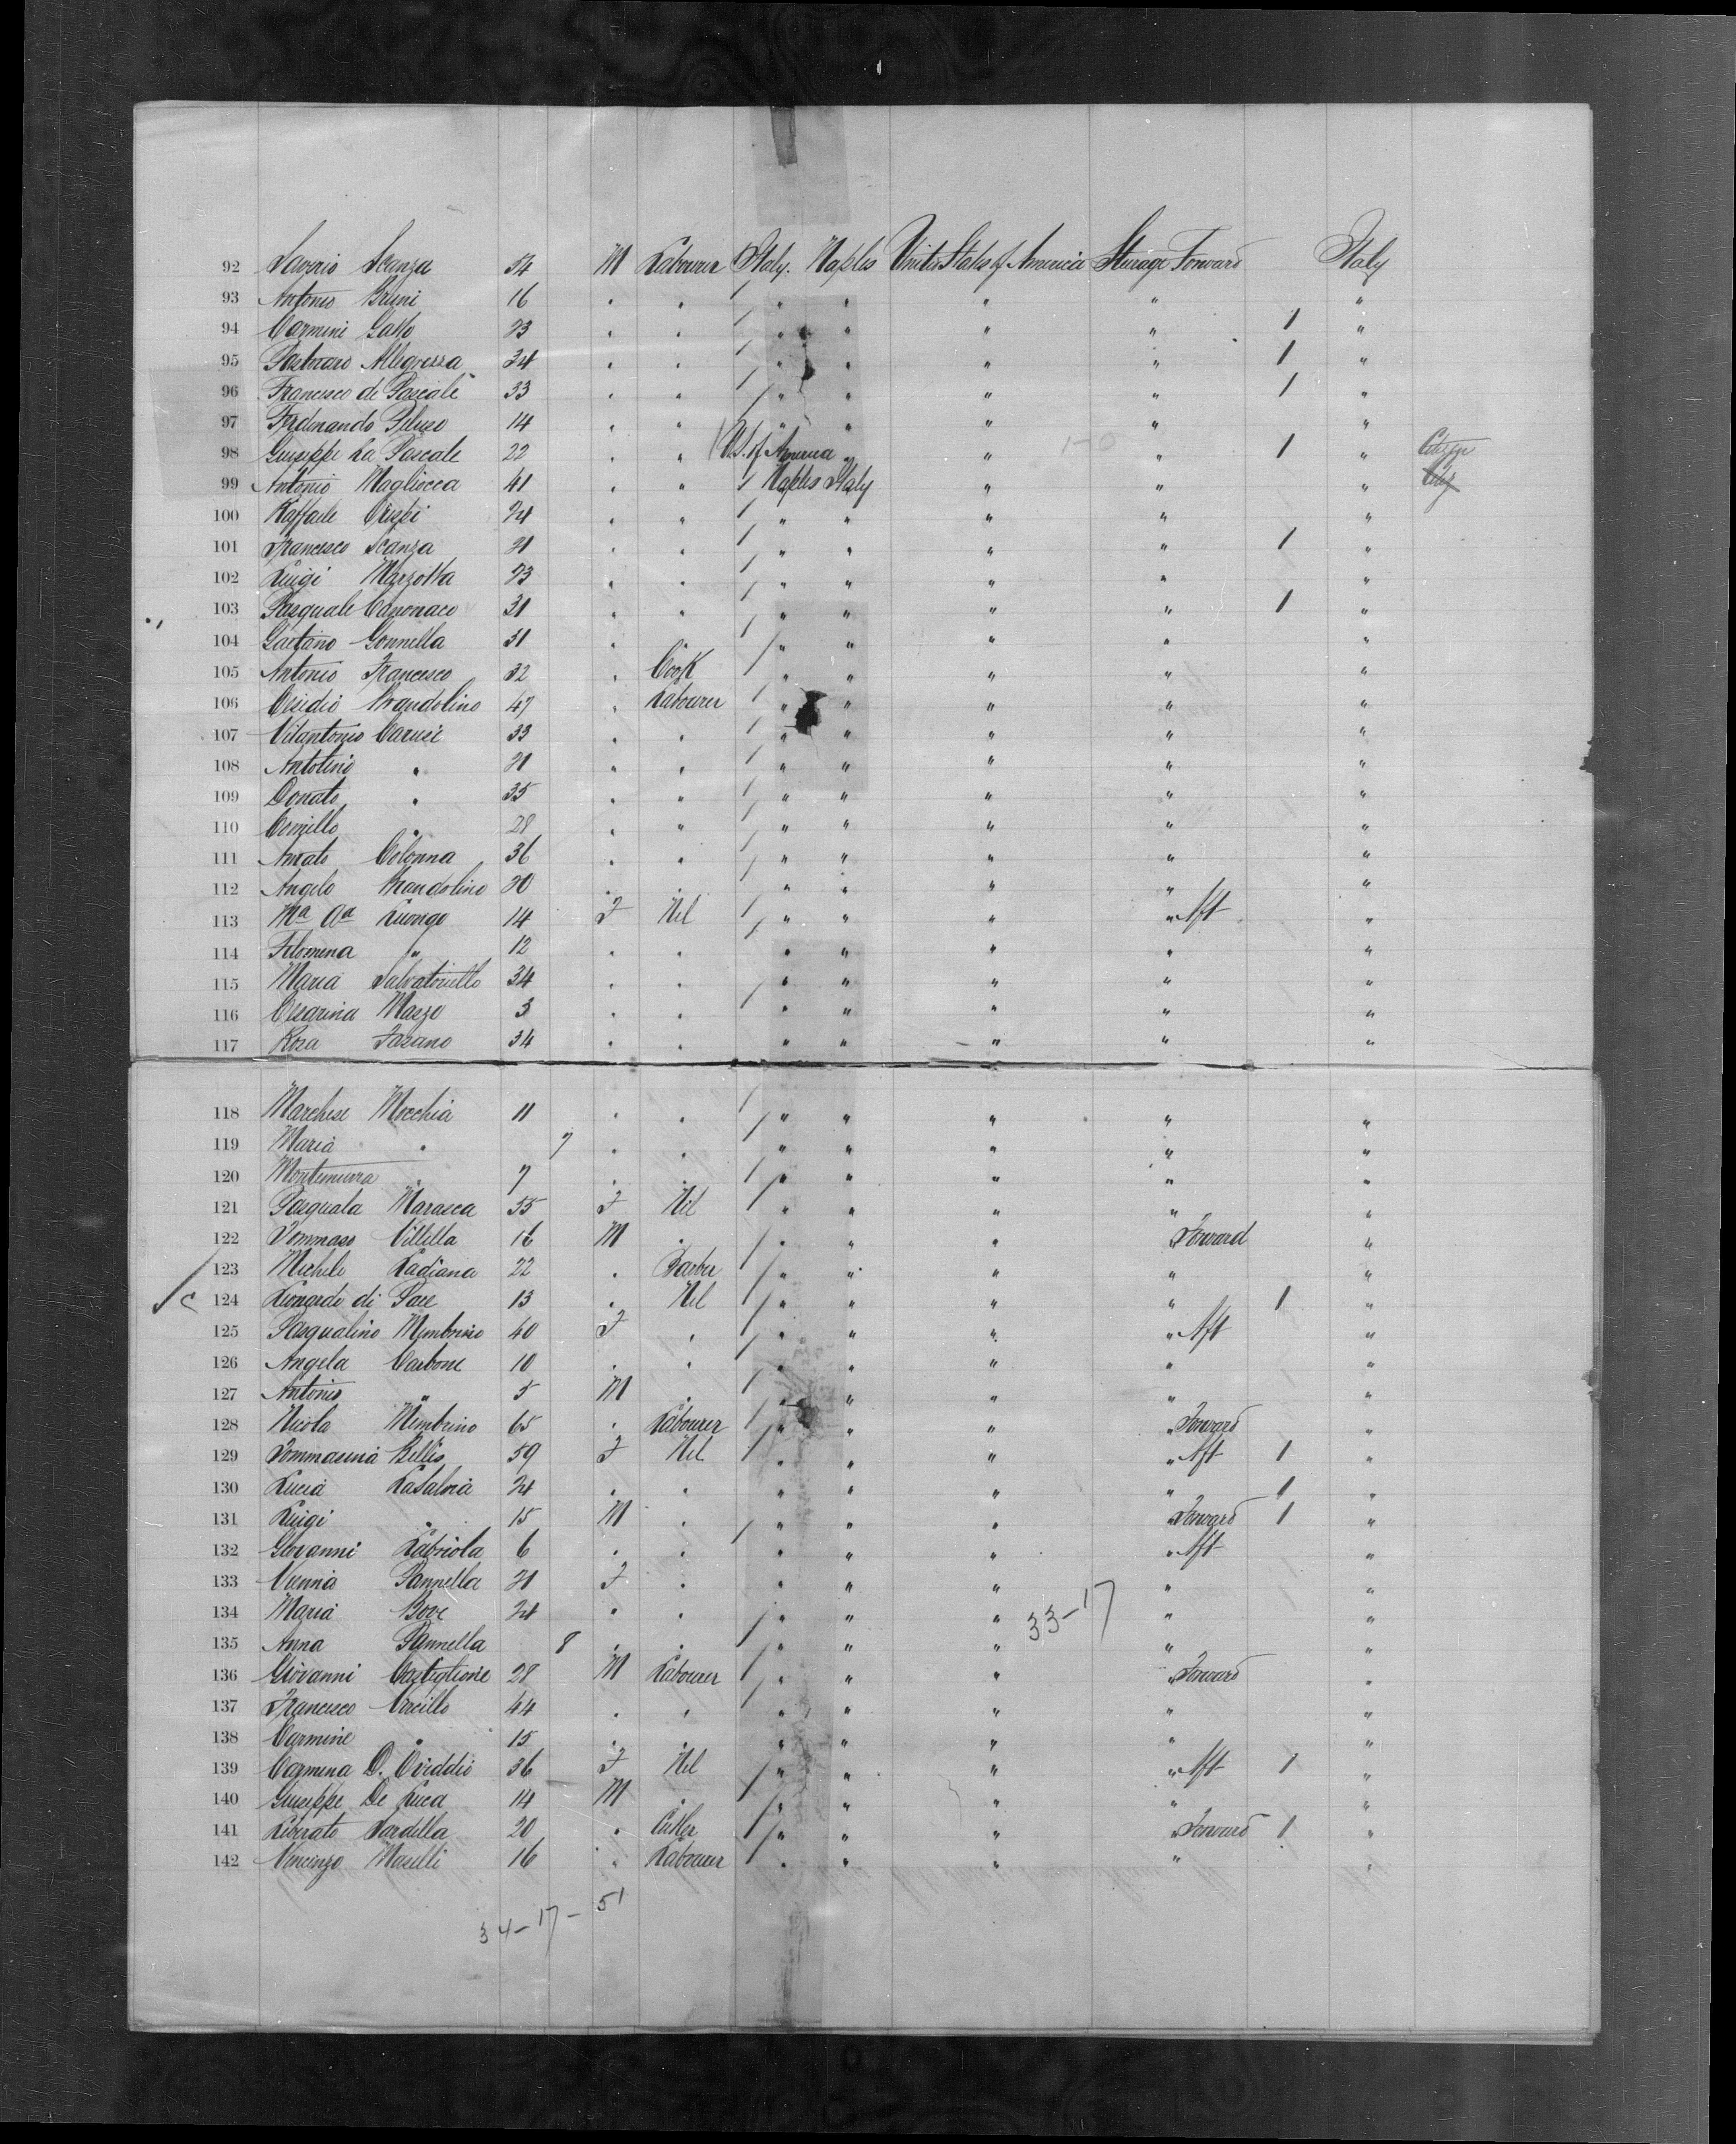 92 Saverio Scanza 54 M Labourer Italy. Naples United States of America Sturage Forward Italy
93 Antonio Bruni 16 " " / " " " " "
94 Carmine Gallo 23 " " / " " " " 1 "
95 Allegrezza 34 " " / " " " " 1 "
96 Francesco de Pascale 33 " " / " " " " 1 "
97 Ferdinando Peluso 14 " " / " " " " "
98 Guiseppe La Pascale 22 " " / U.S. of America " " 1-0 " 1 " Citizen
99 Antonio Magliocca 41 " " / Naples Italy " " "
100 Raffaele Crispi 24 " " / " " " " "
101 Francesco Scanza 21 " " / " " " " 1 "
102 Luigi Marzotta 23 " " / " " " " "
103 Pasquale Canonaco 31 " " / " " " " 1 "
104 Gaetano Gonnella 31 " " / " " " " "
105 Antonio Francesco 32 " Cook / " " " " "
106 Cesidio Brandolino 47 " Labourer / " " " " "
107 Vitantonio Caruse 33 " " / " " " " "
108 Antolino " 21 " " / " " " " "
109 Donato " 35 " " / " " " " "
110 Comillo " 28 " " / " " " " "
111 Amato Colonna 36 " " / " " " " "
112 Angelo Brandolino 20 " " / " " " " "
113 Ma Aa Luongo 14 F Nil / " " " " Aft "
114 Filomena " 12 " " / " " " " "
115 Maria Salvatoriello 34 " " " " " " "
116 Cesarina Mazzo 3 " " / " " " " "
117 Rosa Fasano 34 " " / " " " " "
118 Marchese Micchia 11 " " / " " " " "
119 Maria " 7 " " / " " " " "
120 Montemurra " 7 " " " " " " "
121 Pasquala Marasca 55 F Nil / " " " " "
122 Tommaso Villella 16 M " / " " " " Forward "
123 Michele Ladiana 22 " Barber / " " " " "
124 Leonardo di Pace 13 " Nil / " " " " 1 "
125 Pasqualino Membrino 40 F " / " " " " Aft "
126 Angela Carbone 10 " " / " " " " "
127 Antonio " 5 M " / " " " " "
128 Nicola Membrino 65 " Labourer / " " " " Forward "
129 Tommasina Bellis 59 F Nil / " " " " Aft 1 "
130 Lucia LaSalvia 24 " " / " " " " 1 "
131 Luigi " 15 M " " " " " Forward 1 "
132 Giovanni Labriola 6 " " / " " " " Aft "
133 Pannella 21 F " " " " " "
134 Maria Bove 24 " " " " " 33-17 " "
135 Anna Pannella 8 " " / " " " " "
136 Giovanni Castiglione 28 M Labourer / " " " " Forward "
137 Francesco Carcillo 44 " " / " " " " "
138 Carmine " 15 " " / " " " " "
139 Carmena D. Oviddio 36 F Nil / " " " " Aft 1 "
140 Guiseppe De Luca 14 M " / " " " " "
141 Liberato Sardella 20 " Cutler / " " " " Forward 1 "
142 Vincenzo Maselli 16 " Labourer / " " " " "
34-17-51